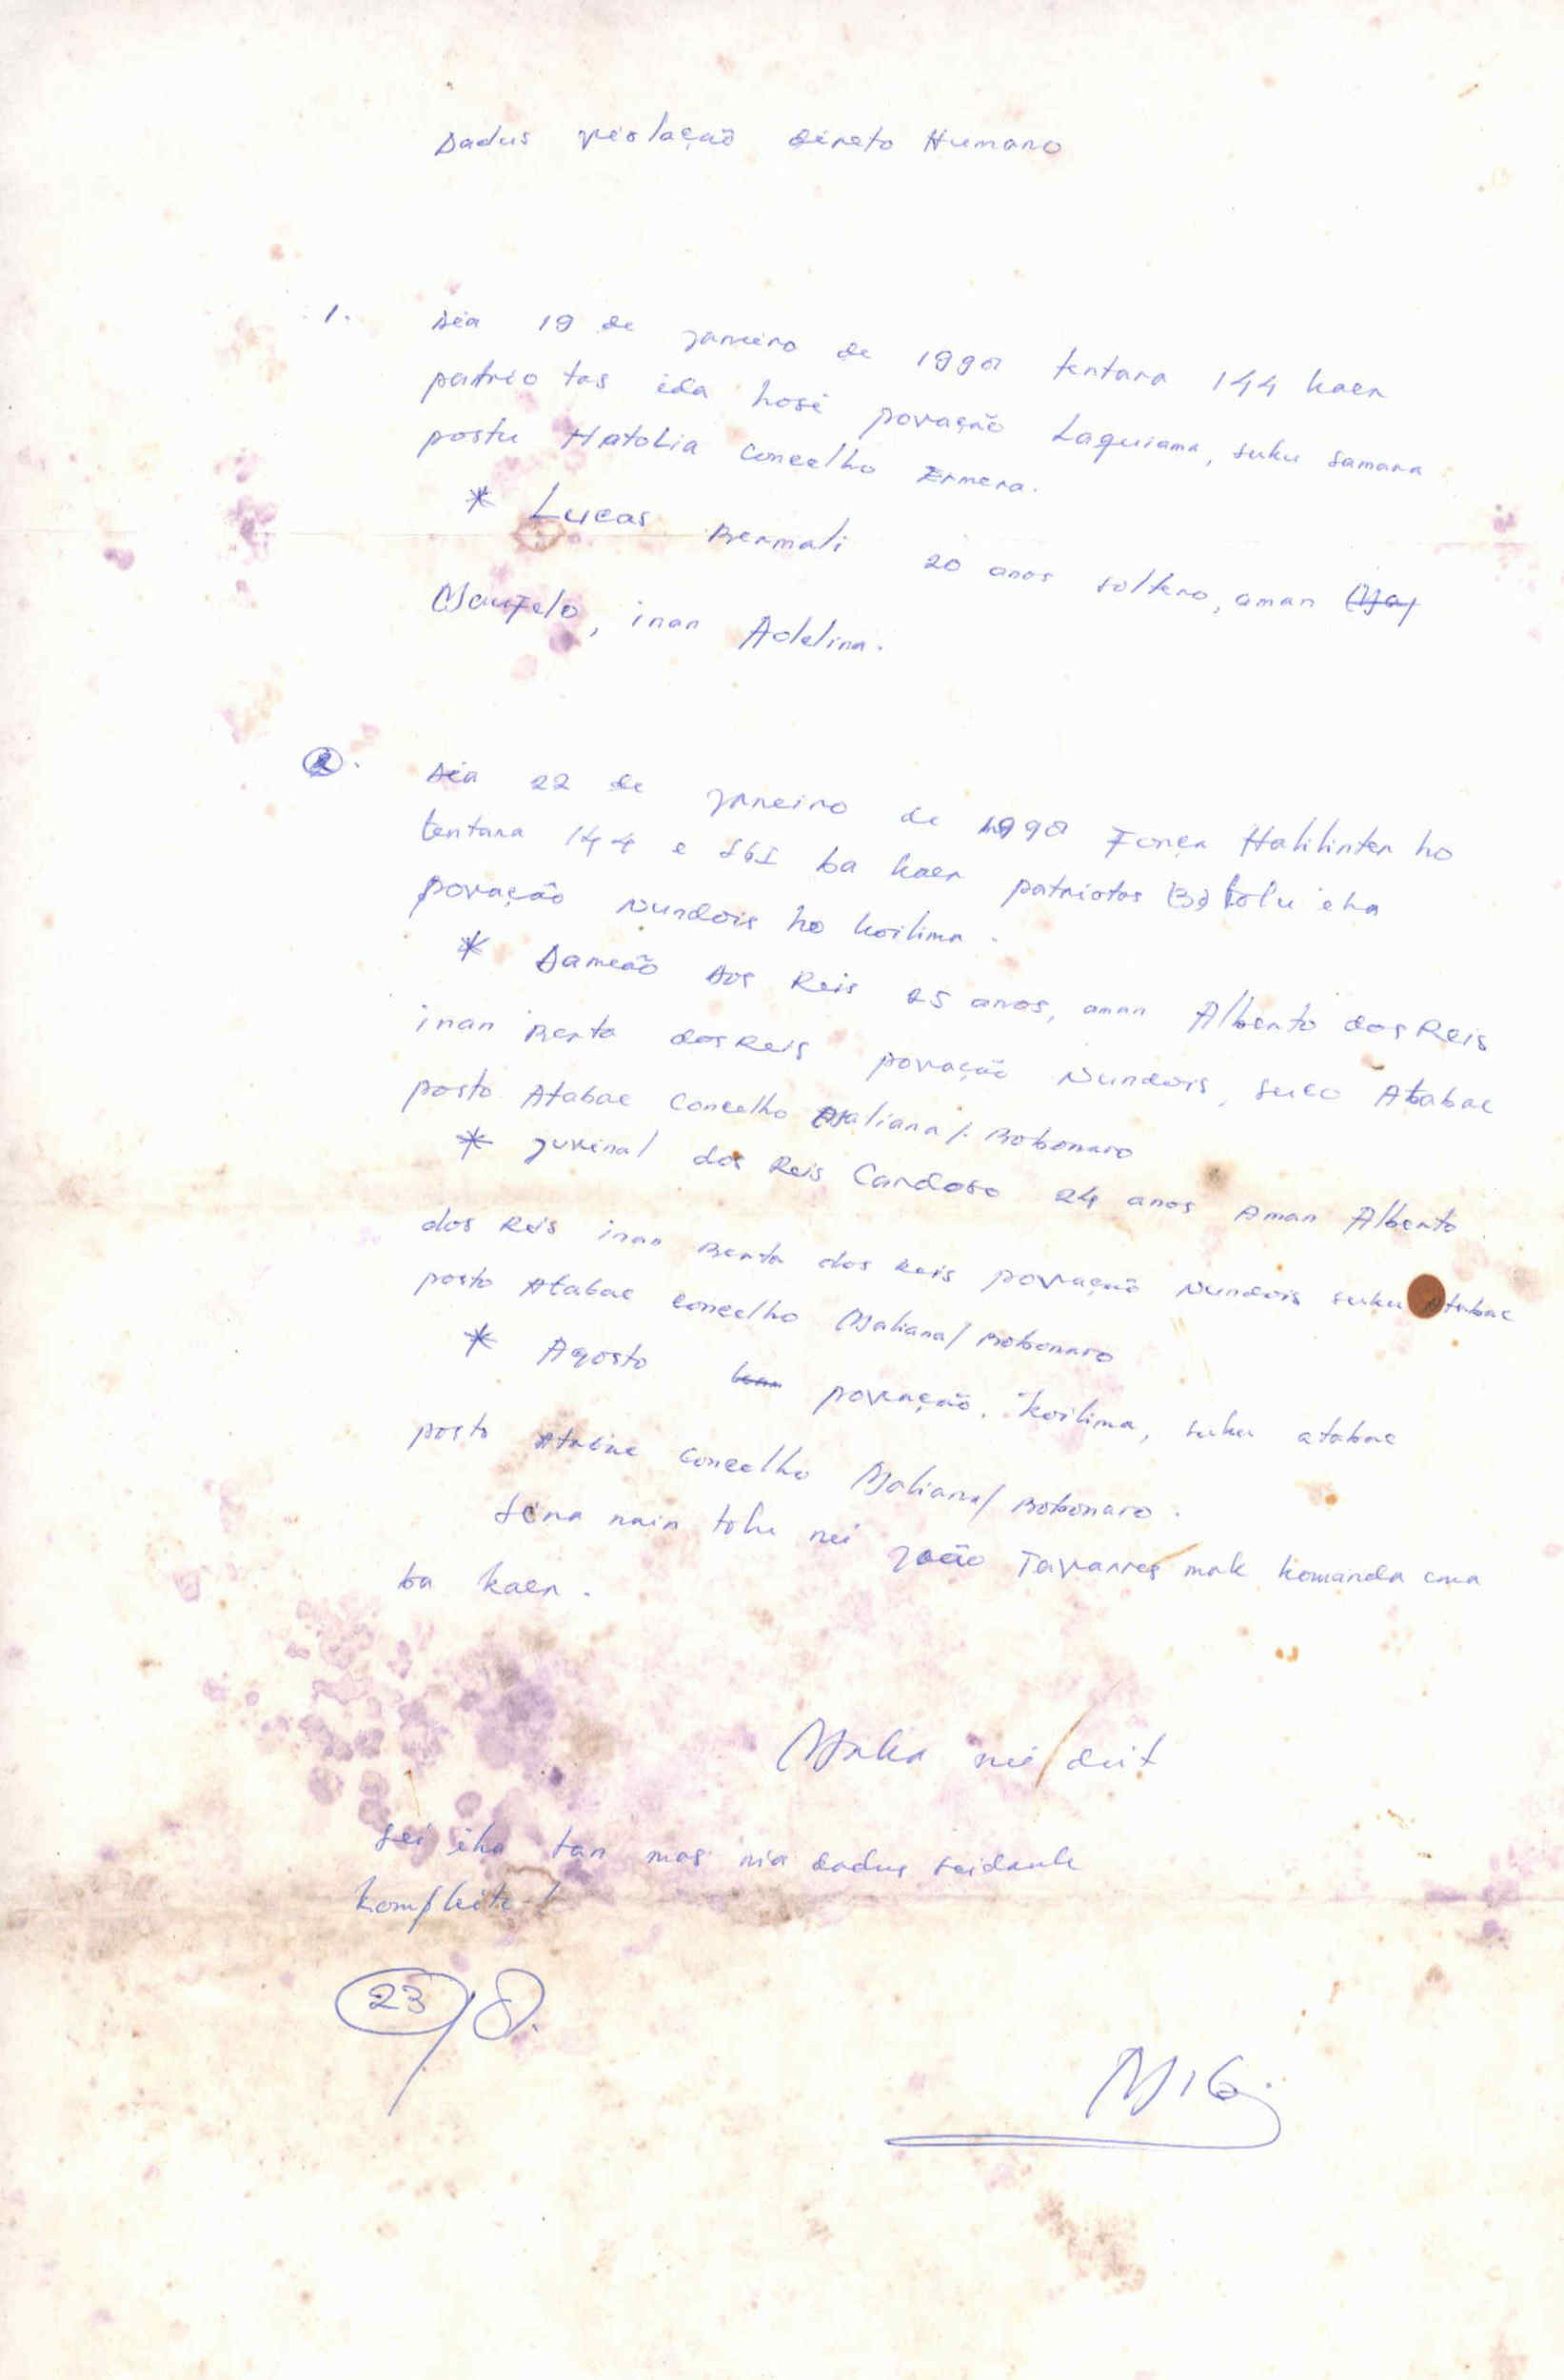 Dadus violação direto Humano
1. Dia 19 de janeiro de 1998 tentara 144 kaer
patriotas ida hosi povação Laquiama, suku Samara
postu Hatolia Concelho Ermera.
* Lucas Bermali 20 anos soltero, aman
Maufelo, inan Adelina.
2. Dia 22 de janeiro de 1998 Força Halilinter ho
tentara 144 e SGI ba kaer patriotas (3) tolu iha
povação Nundois ho koilima.
* Damião dos Reis 25 anos, aman Alberto dos Reis
inan Berta dos Reis povação Nundois, suco Atabae
posto Atabae Concelho Maliana/. Bobonaro
* juvinal dos Reis Cardoso 24 anos Aman Alberto
dos Reis inan Berta dos Reis povação Nundois suku Atabae
posto Atabae concelho Maliana/ Bobonaro
* Agosto povação. Koilima, suku atabae
posto Atabae Concelho Maliana/ Bobonaro.
Sira nain tolu nei João Tavarres mak komanda ema
ba kaer.
Maka ne'e deit
Sei iha tan mas nia dadus seidauk
kompleitu!
23/8.